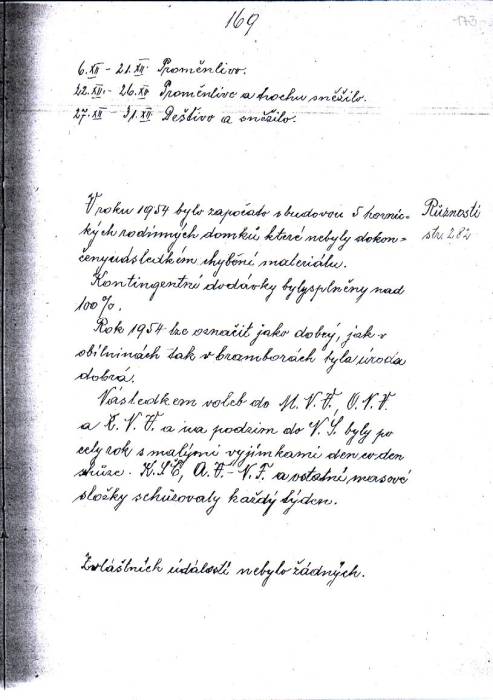 169
173
6.XII - 21.XII. Proměnlivo.
22.XII. - 26.XII Proměnlivo a trochu sněžilo.
27.XII - 31.XII Deštivo a sněžilo.
V roku 1954 bylo započato s budovou 5 hornic-
kých rodinných domků které nebyly dokon-
čeny následkem chybění materiálu.
Různosti
str. 282
Kontingentní dodávky byly splněny nad
100%.
Rok 1954 lze označit jako dobrý, jak v
obilninách tak v bramborách byla úroda
dobrá.
Následkem voleb do M.N.V, O.N.V
a K.N.V. a na podzim do N.S. byly po
celý rok s malými vyjímkami den co den
schůze. K.S.Č, A.V-N.F. a ostatní masové
složky schůzovaly každý týden.
Zvláštních událostí nebylo žádných.